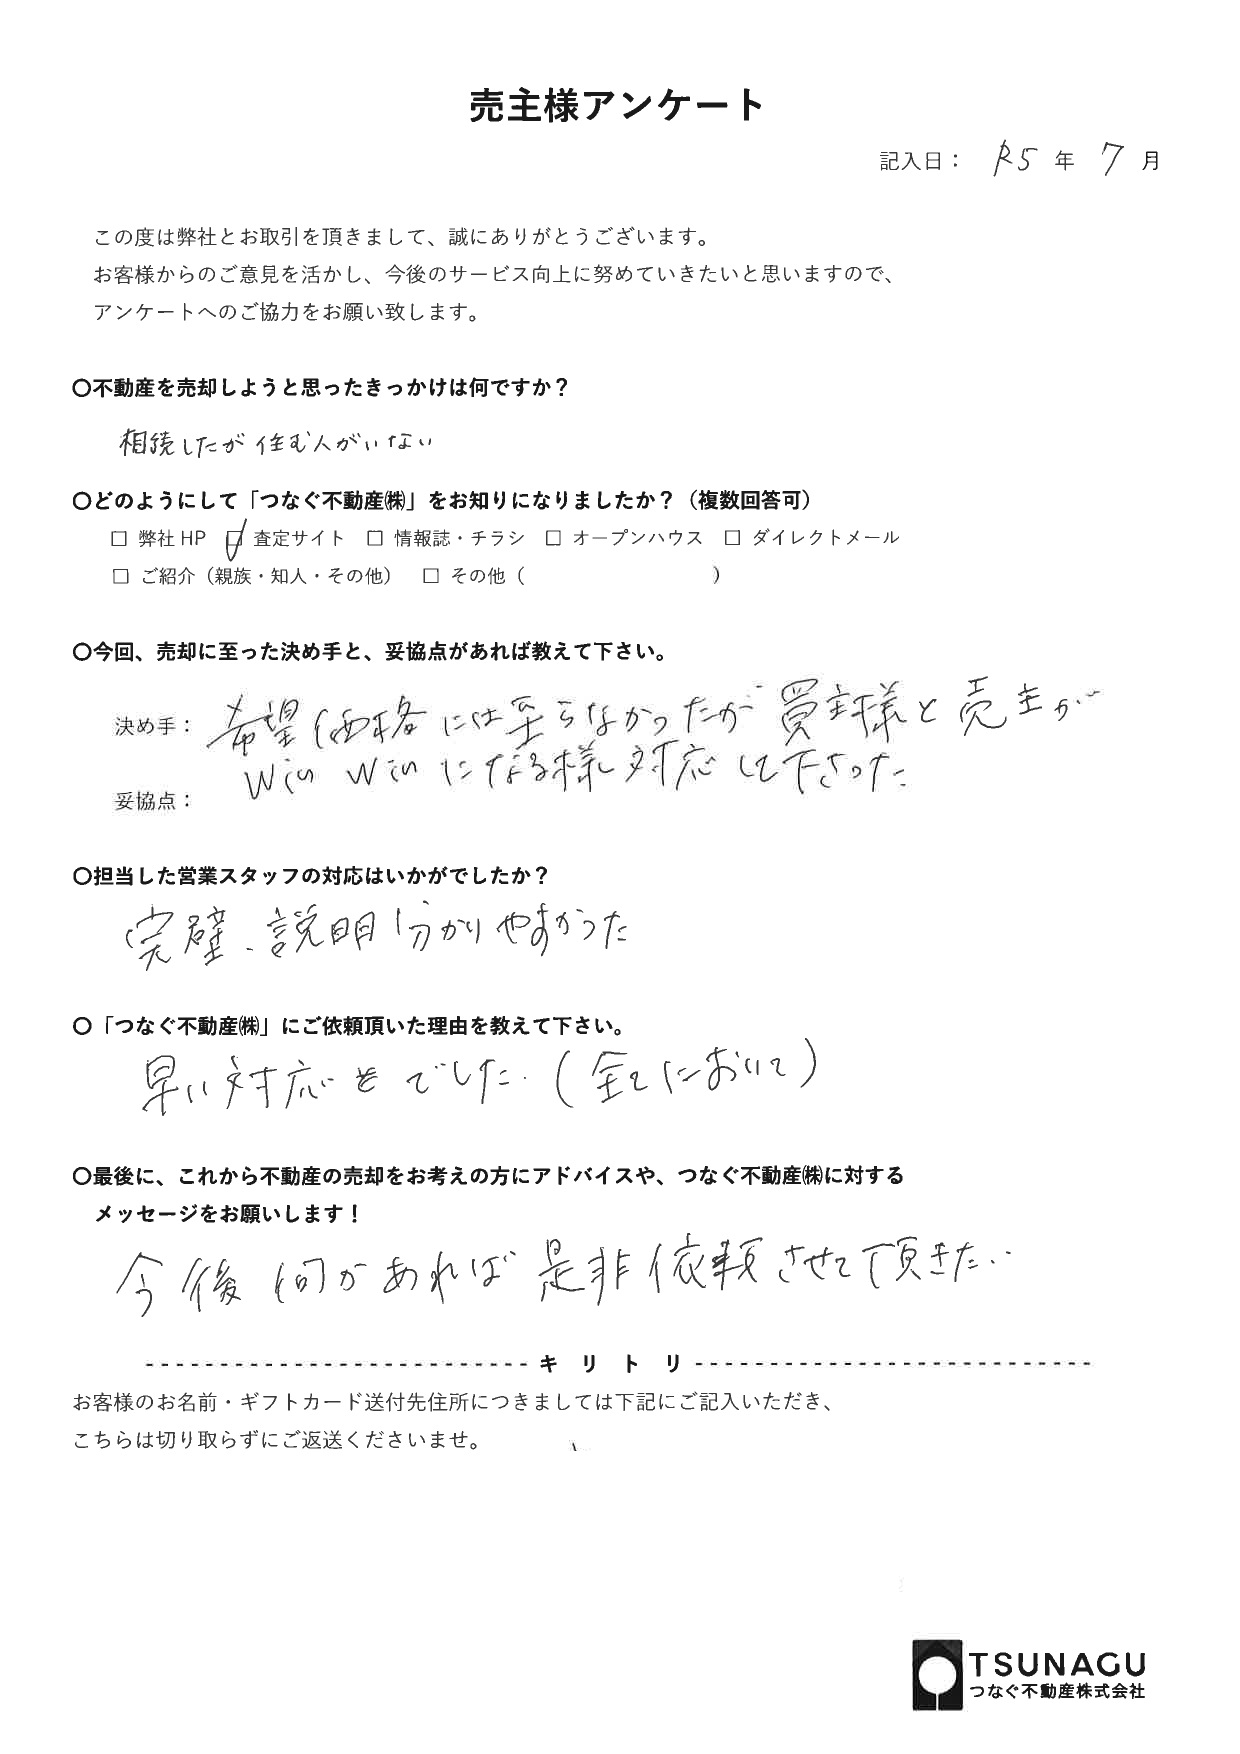 売主様アンケート
記入日： R5 年 7 月
この度は弊社とお取引を頂きまして、誠にありがとうございます。
お客様からのご意見を活かし、今後のサービス向上に努めていきたいと思いますので、
アンケートへのご協力をお願い致します。
〇不動産を売却しようと思ったきっかけは何ですか？
相続したが住む人がいない
〇どのようにして「つなぐ不動産㈱」をお知りになりましたか？（複数回答可）
□ 弊社 HP ☑ 査定サイト □ 情報誌・チラシ □ オープンハウス □ ダイレクトメール
□ ご紹介（親族・知人・その他） □ その他（ ）
〇今回、売却に至った決め手と、妥協点があれば教えて下さい。
決め手： 希望価格には至らなかったが 買主様と売主が
Win Winになる様 対応して下さった
妥協点：
〇担当した営業スタッフの対応はいかがでしたか？
完璧、説明分かりやすかった
〇「つなぐ不動産㈱」にご依頼頂いた理由を教えて下さい。
早い対応 でした.（全てにおいて）
〇最後に、これから不動産の売却をお考えの方にアドバイスや、つなぐ不動産㈱に対する
メッセージをお願いします！
今後何かあれば是非依頼させて頂きたい
キリトリ
お客様のお名前・ギフトカード送付先住所につきましては下記にご記入いただき、
こちらは切り取らずにご返送くださいませ。
TSUNAGU
つなぐ不動産株式会社